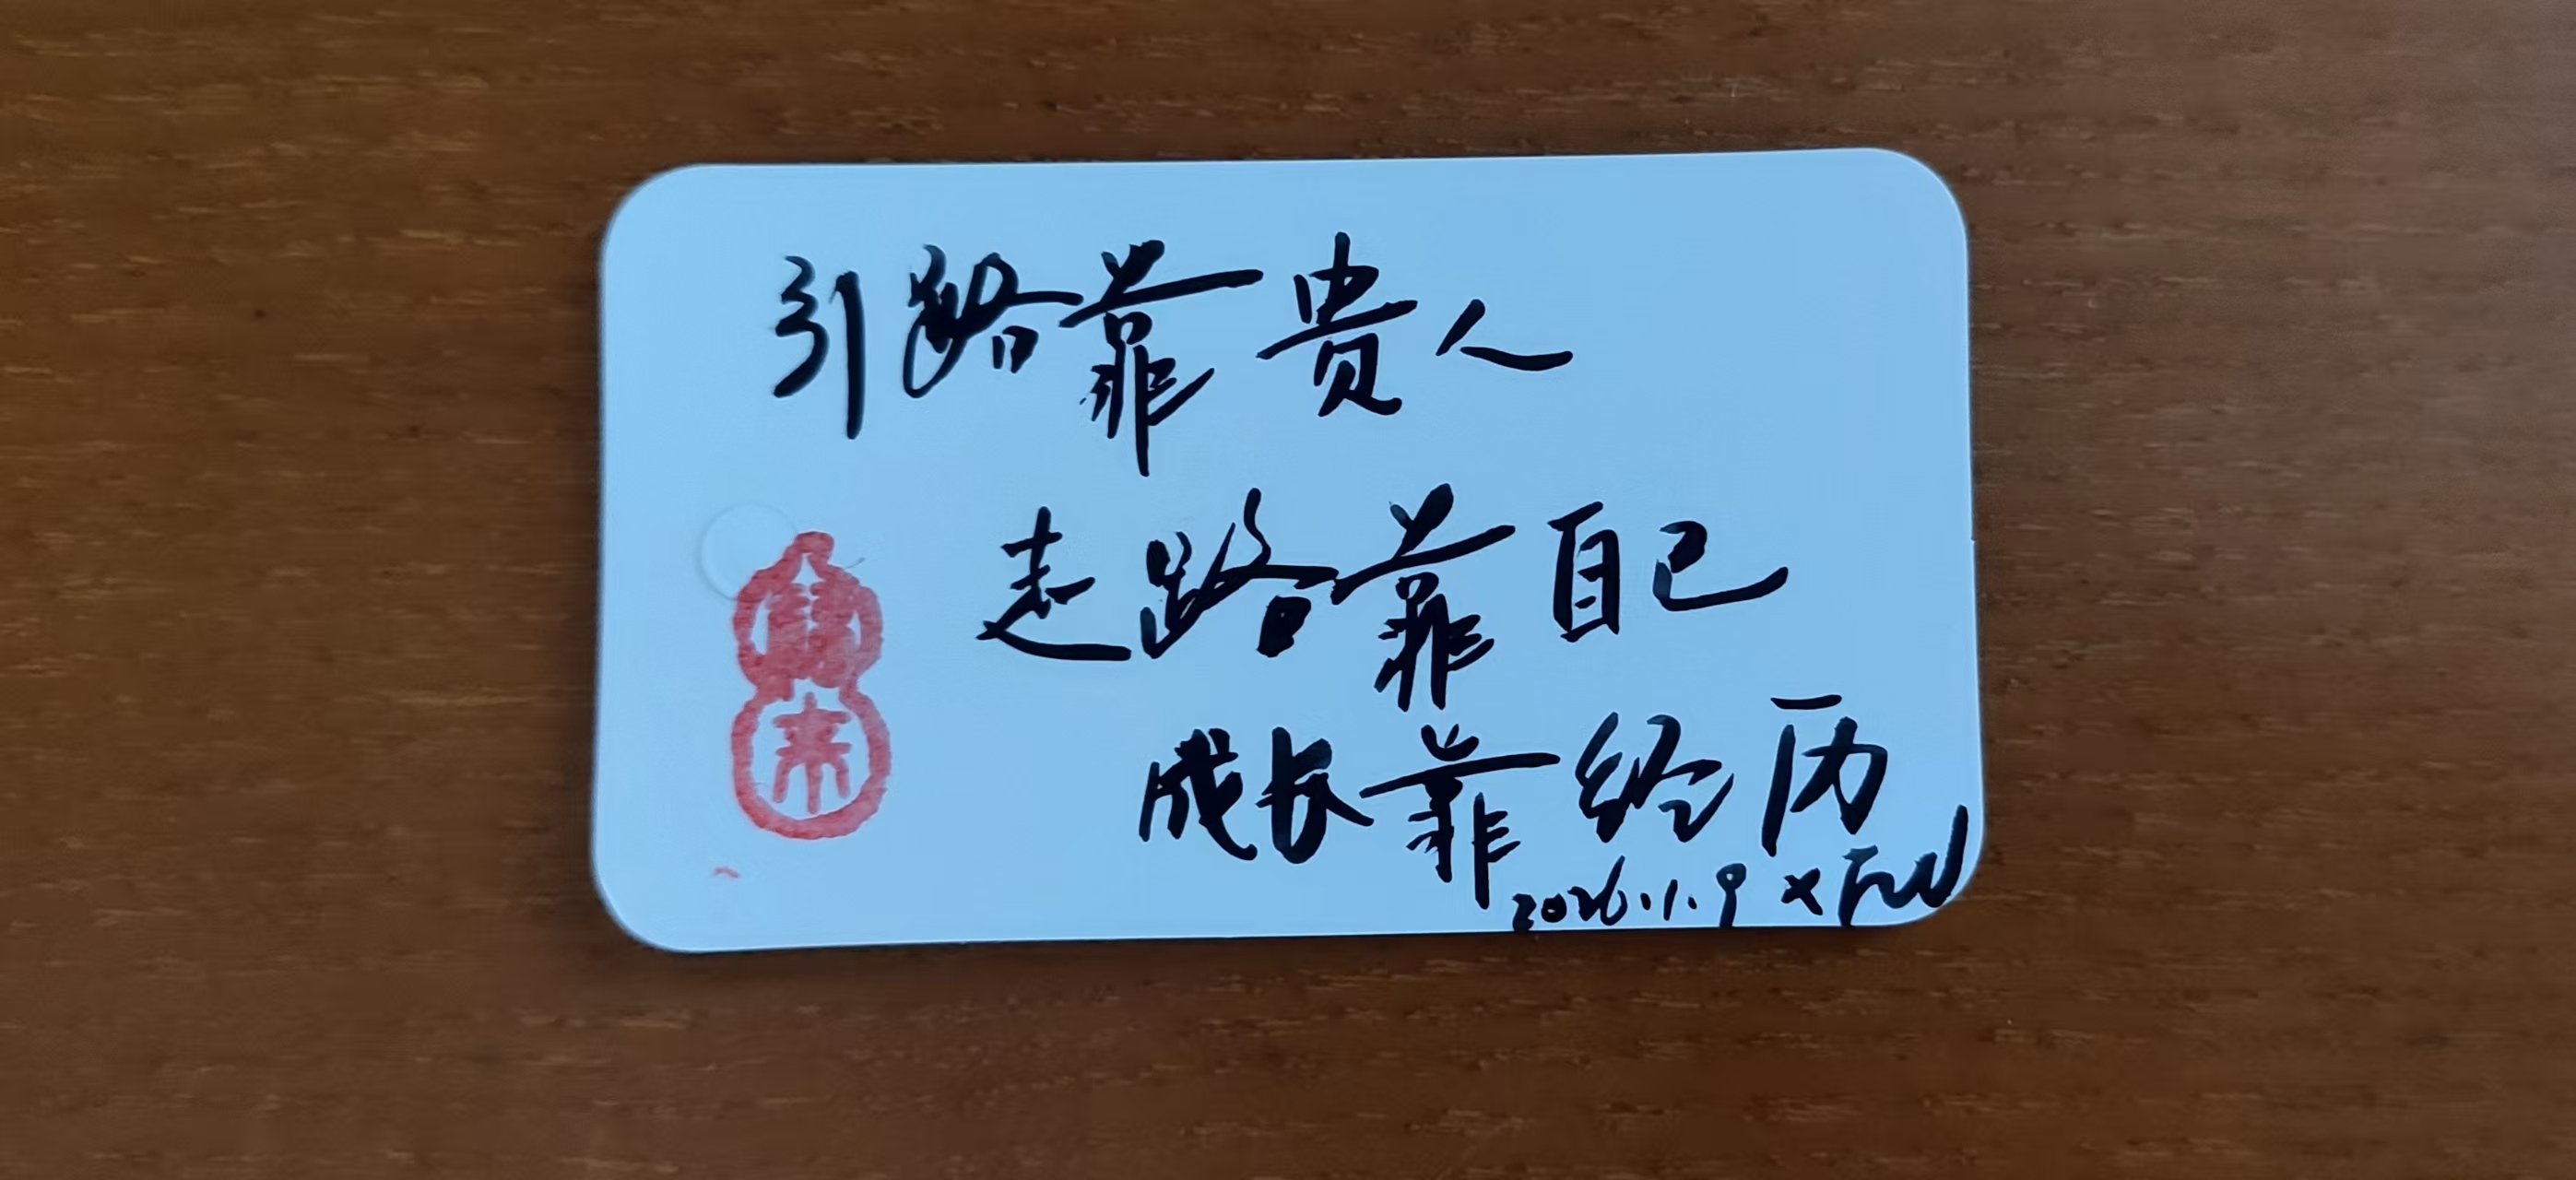 引路靠贵人
走路靠自己
成长靠经历
2026.1.9
来